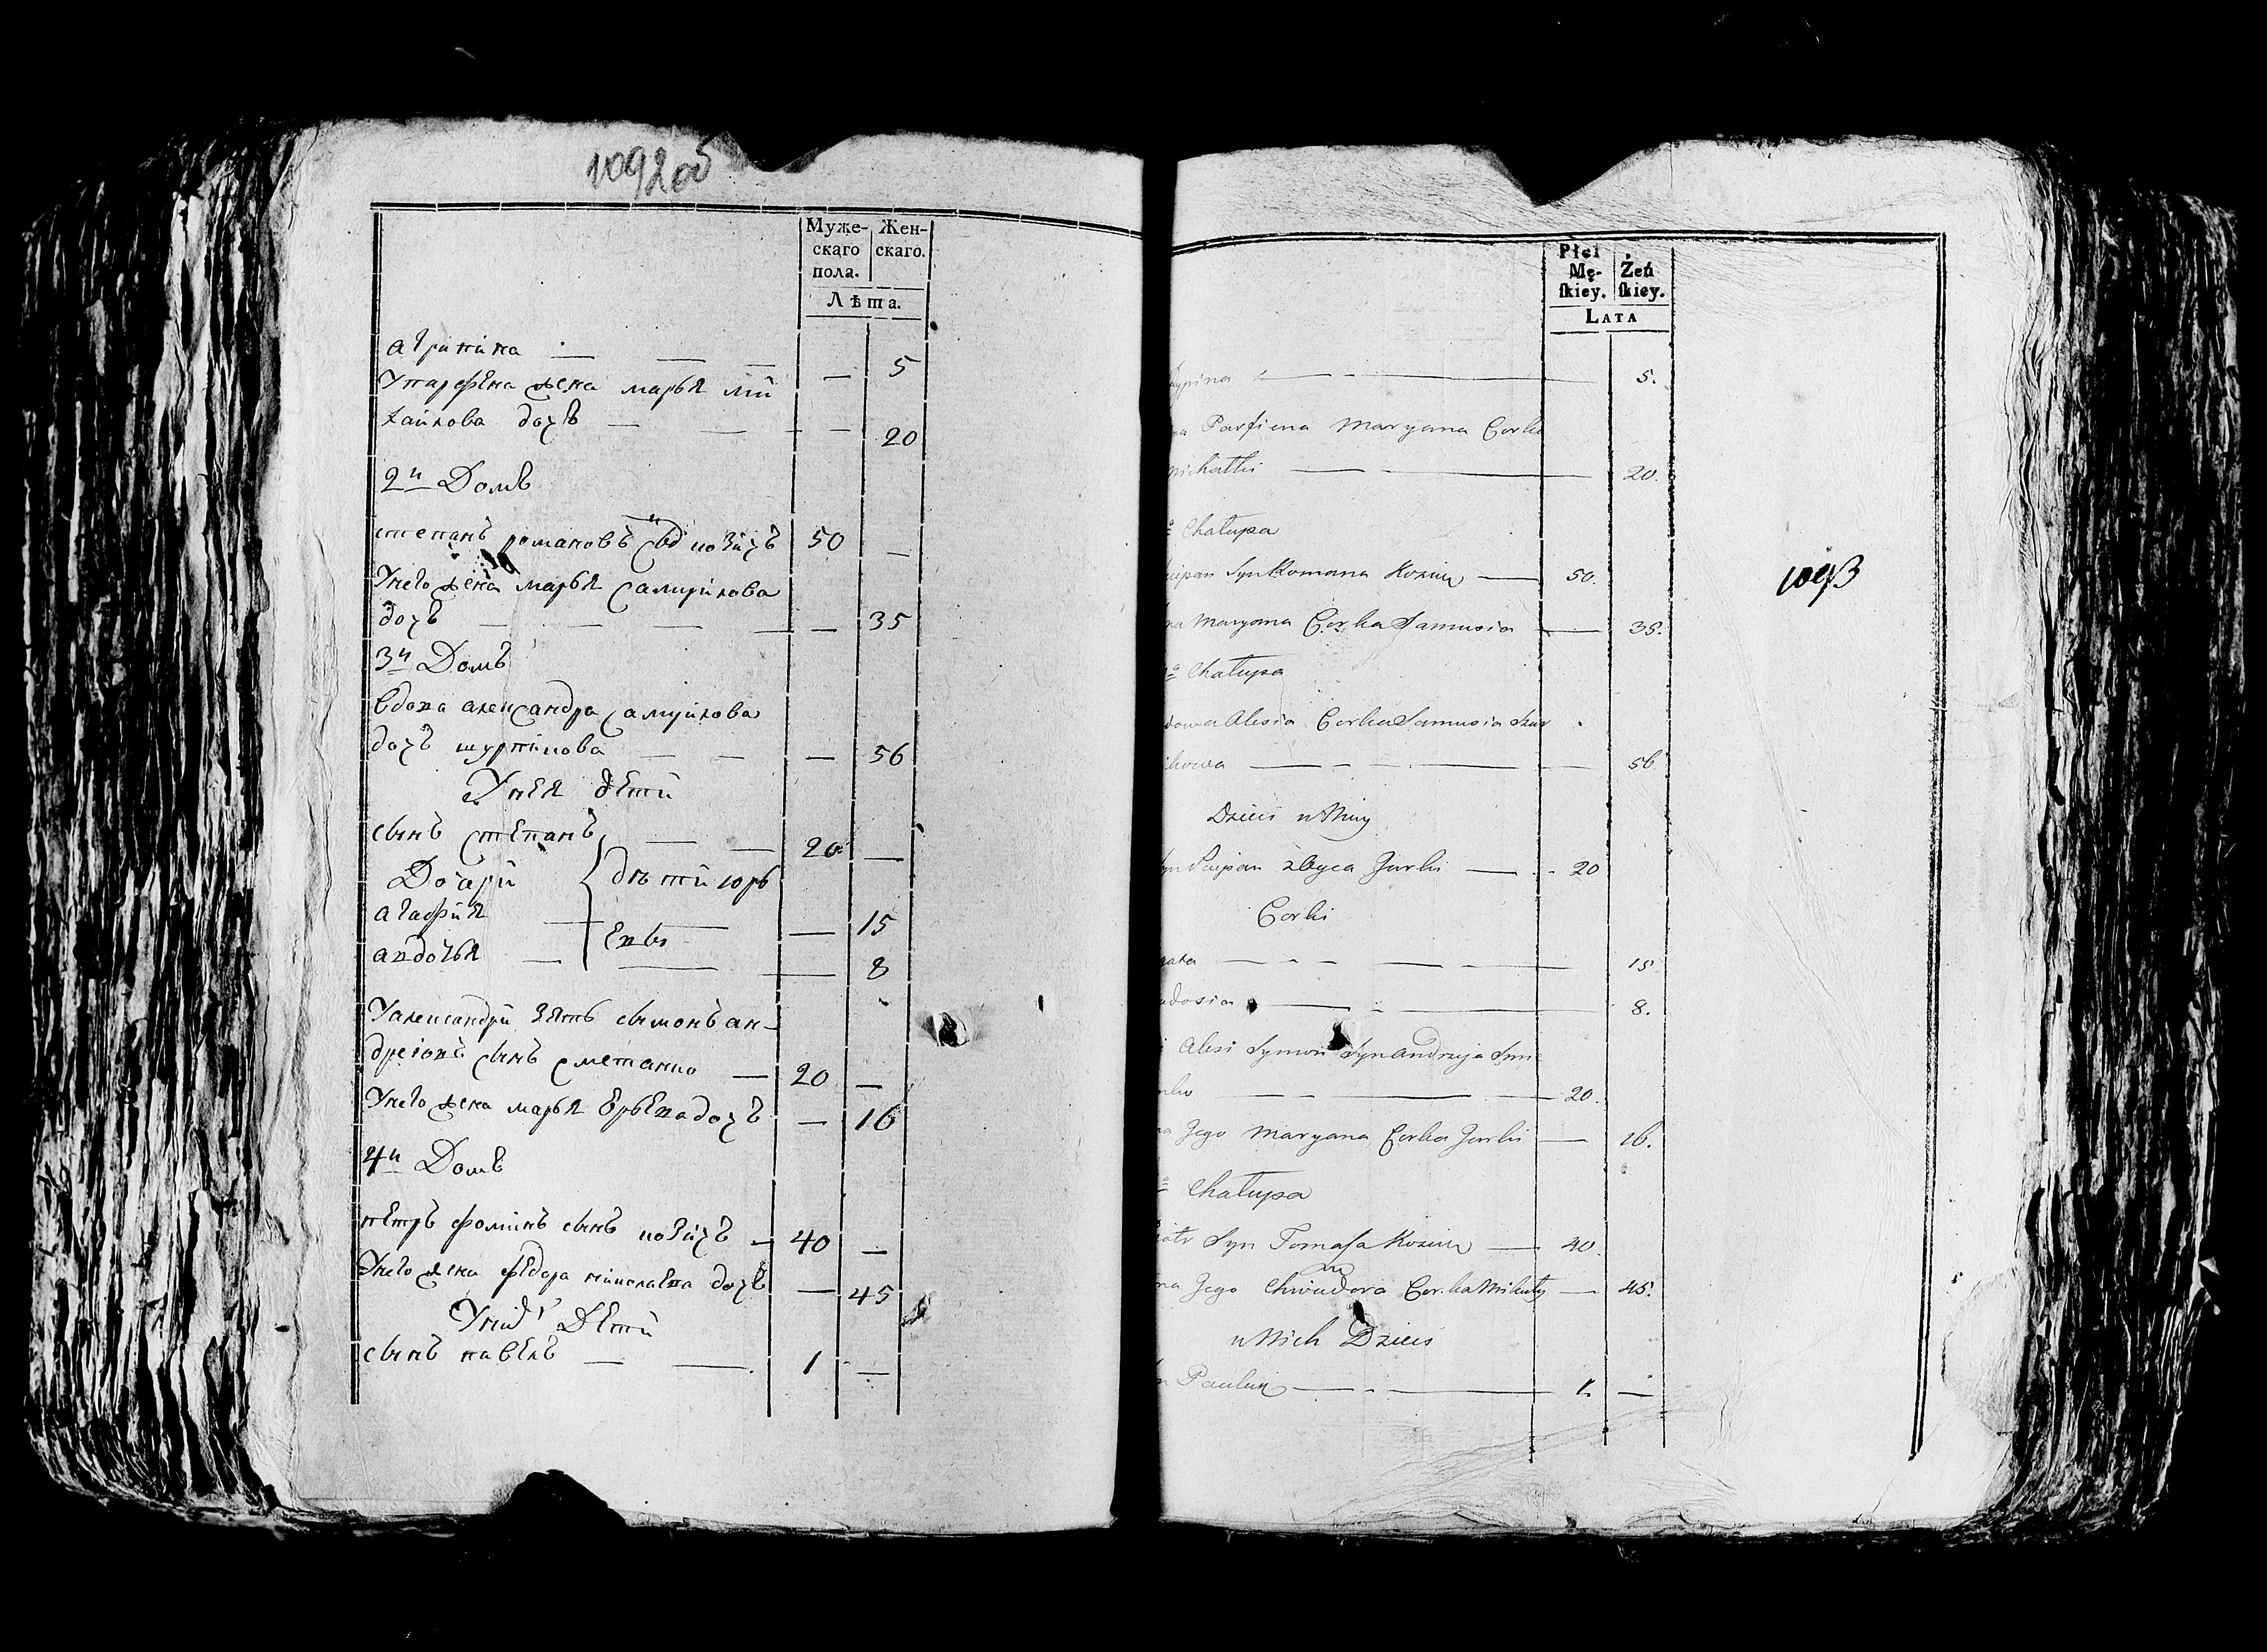 1092 об
Муже-
скаго
пола.
Жен-
скаго.
Лѣта.
агрипина — — — 5
Упарфена жена марья ми
хайлова дочъ — — — — 20
2й Домъ
степанъ романовъ сынъ козичъ 50 —
Унего жена марья самуйлова
дочъ — — — — — 35
3й Домъ
вдова александра самуйлова
дочъ — — — 56
Унея дети
сынъ степанъ — — 20 —
Дочери
дѣти юрь
агафия — — 15
евы
авдотья — — — 8
Уалександри зять сымонъ ан-
дреговъ сынъ сметанко — 20 —
Унего жена марья юрьева дочъ — 16
4й Домъ
петръ фоминъ сынъ козичъ — 40 —
Унего жена федора дочъ — 45
Унихъ Дети
сынъ павелъ — — 1 —
Płci
Mę-
skiey.
Żeń
skiey.
LATA
ypina — — — 5.
na Parfiena Maryana Corka
Michałki — — — 20.
a Chałupa
ciepan Syn Romana Kozicz — 50.
na Maryana Corka Samusia — 35.
a Chałupa
dowa Alesia Corka Samusia Szur
ikowa — — — — 56
Dzieci u Niey
yn Sciepan z Oyca Jurki — 20
Corki
gata — — — — 15
udosia — — — 8.
i Alesi Symon Syn Andrzeja Smie
nko — — — 20.
na Jego Maryana Corka Jurki — 16.
a Chałupa
iotr Syn Tomasza Kozicz — 40.
na Jego Chwiedora Corka Mikuty — 45.
u Nich Dzieci
n Pauluk — — — 1. —
1093